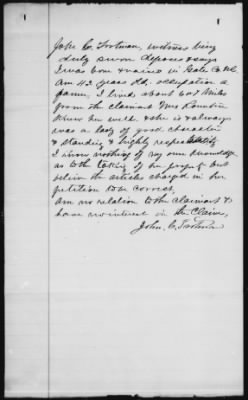 John C. Trotman, witness being
duly sworn deposes & says
I was born & raised in Gates Co NC
Am 42 years old. occupation a
farmer, I lived about 6 or 7 miles
from the claimant Mrs
Knew her well & she is & always
was a lady of good character
& standing & highly respectable
I know nothing of my own knowledge
as to the taking of her property but
believe the articles charged in her
petition to be correct,
am no relation to the claimant &
have no interest in the Claim,
John, C, Trotman